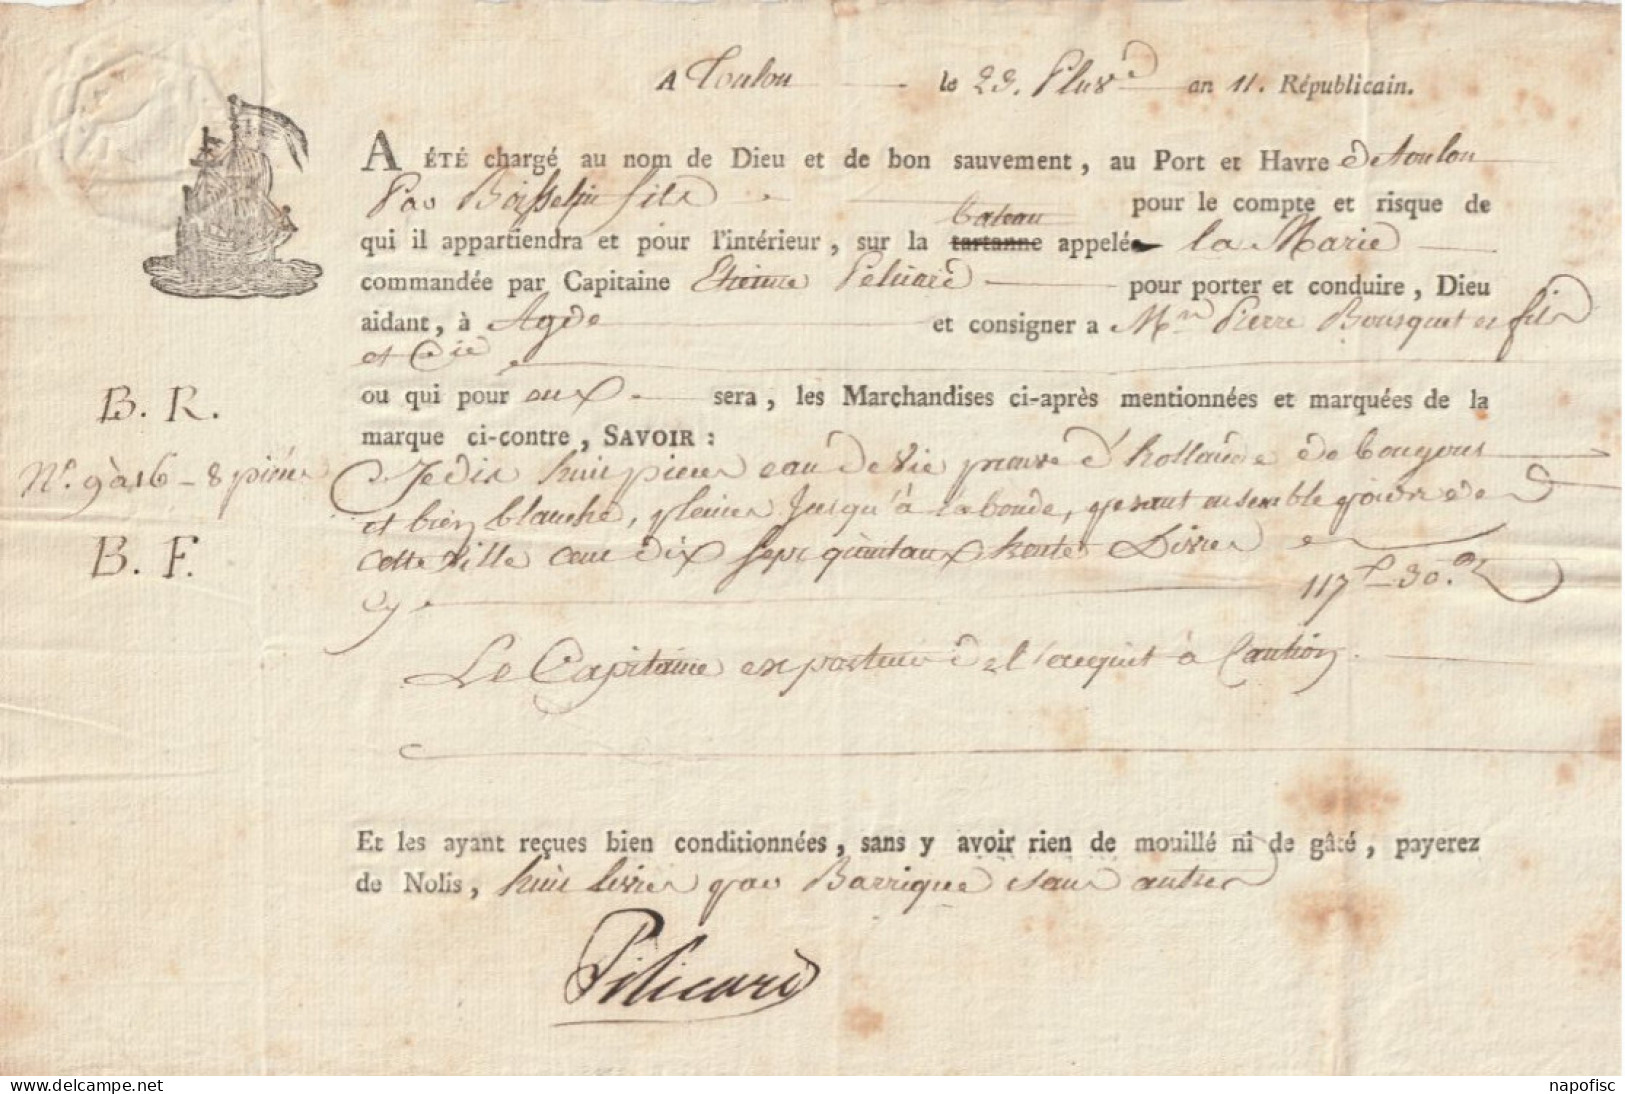 A Toulon le 23. Pluv.e an 11. Républicain.
A ÉTÉ chargé au nom de Dieu et de bon sauvement, au Port et Havre de toulon
Par Boisselin fils pour le compte et risque de
bateau
qui il appartiendra et pour l'intérieur, sur la tartanne appelée la Marie
commandée par Capitaine Etienne pour porter et conduire, Dieu
aidant, à Agde et consigner a M.rs Pierre Bousquet et fils
et Cie
ou qui pour eux sera, les Marchandises ci-après mentionnées et marquées de la
marque ci-contre, SAVOIR :
B. R.
N.o 9 à 16 - 8 pièces
B. F.
Je dis huit pieces eau de vie preuve d'hollande de bon gout
et bien blanche, pleines jusqu'à la bonde, pesant ensemble poids de
cette ville cent dix sept quintaux trente Livres
117 30.
Le Capitaine est porteur de l'acquit à Caution.
Et les ayant reçues bien conditionnées, sans y avoir rien de mouillé ni de gâté, payerez
de Nolis, huit livres par Barrique sans autres
Pelicard
napofisc
www.delcampe.net